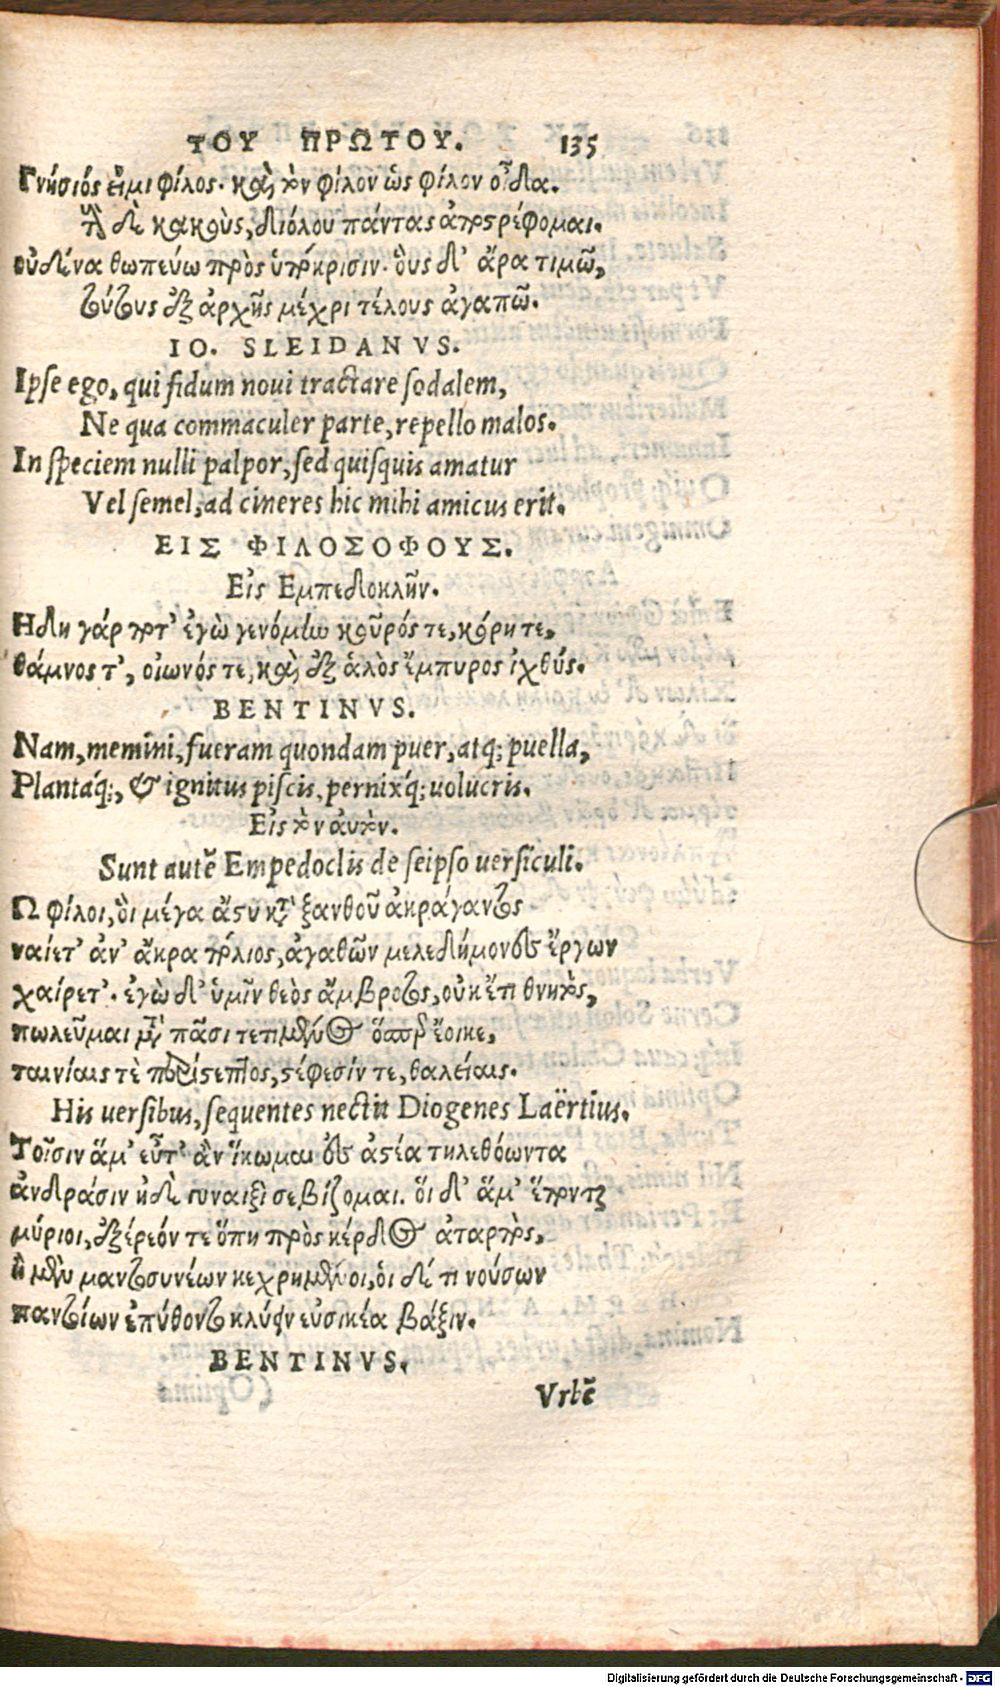 ΤΟΥ ΠΡΩΤΟΥ. 135
Γνήσιός εἰμι φίλος· καὶ τὸν φίλον ὡς φίλον οἶδα.
τοὺς δὲ κακοὺς, διόλου πάντας ἀποστρέφομαι.
οὐδένα θωπεύω πρὸς ὑπόκρισιν· οὓς δ' ἄρα τιμῶ,
τούτους ἐξ ἀρχῆς μέχρι τέλους ἀγαπῶ.
IO. SLEIDANVS.
Ipse ego, qui fidum noui tractare sodalem,
Ne qua commaculer parte, repello malos.
In speciem nulli palpor, sed quisquis amatur
Vel semel, ad cineres hic mihi amicus erit.
ΕΙΣ ΦΙΛΟΣΟΦΟΥΣ.
Εἰς Εμπεδοκλῆν.
Ηδη γάρ ποτ' ἐγὼ γενόμην κοῦρός τε, κόρη τε,
θάμνος τ', οἰωνός τε, καὶ ἐξ ἁλὸς ἔμπυρος ἰχθύς.
BENTINVS.
Nam, memini, fueram quondam puer, atq; puella,
Plantaq́;, & ignitus piscis, pernixq́; uolucris.
Εἰς τὸν αὐτὸν.
Sunt autē Empedoclis de seipso uersiculi.
Ω φίλοι, οἳ μέγα ἄστυ κατὰ ξανθοῦ ἀκράγαντος
ναίετ' ἀν' ἄκρα πόλιος, ἀγαθῶν μελεδήμονες ἔργων
χαίρετ'. ἐγὼ δ' ὑμῖν θεὸς ἄμβροτος, οὐκ ἔτι θνητὸς,
πωλεῦμαι μετὰ πᾶσι τετιμένος ὥσπερ ἔοικε,
ταινίαις τὲ περίστεπτος, στέφεσίν τε, θαλείαις.
His uersibus, sequentes nectit Diogenes Laërtius.
Τοῖσιν ἅμ' εὖτ' ἂν ἵκωμαι ἐς ἄστεα τηλεθόωντα
ἀνδράσιν ἠδὲ γυναιξὶ σεβίζομαι. οἵ δ' ἅμ' ἕπονται
μύριοι, ἐξερέοντε ὅπη πρὸς κέρδος ἀταρπὸς,
οἱ μὲν μαντοσυνέων κεχρημένοι, οἱ δέ τι νούσων
παντοίων ἐπύθοντο κλύειν εὐσικέα βάξιν.
BENTINVS.
Vrbē
Digitalisierung gefördert durch die Deutsche Forschungsgemeinschaft - DFG